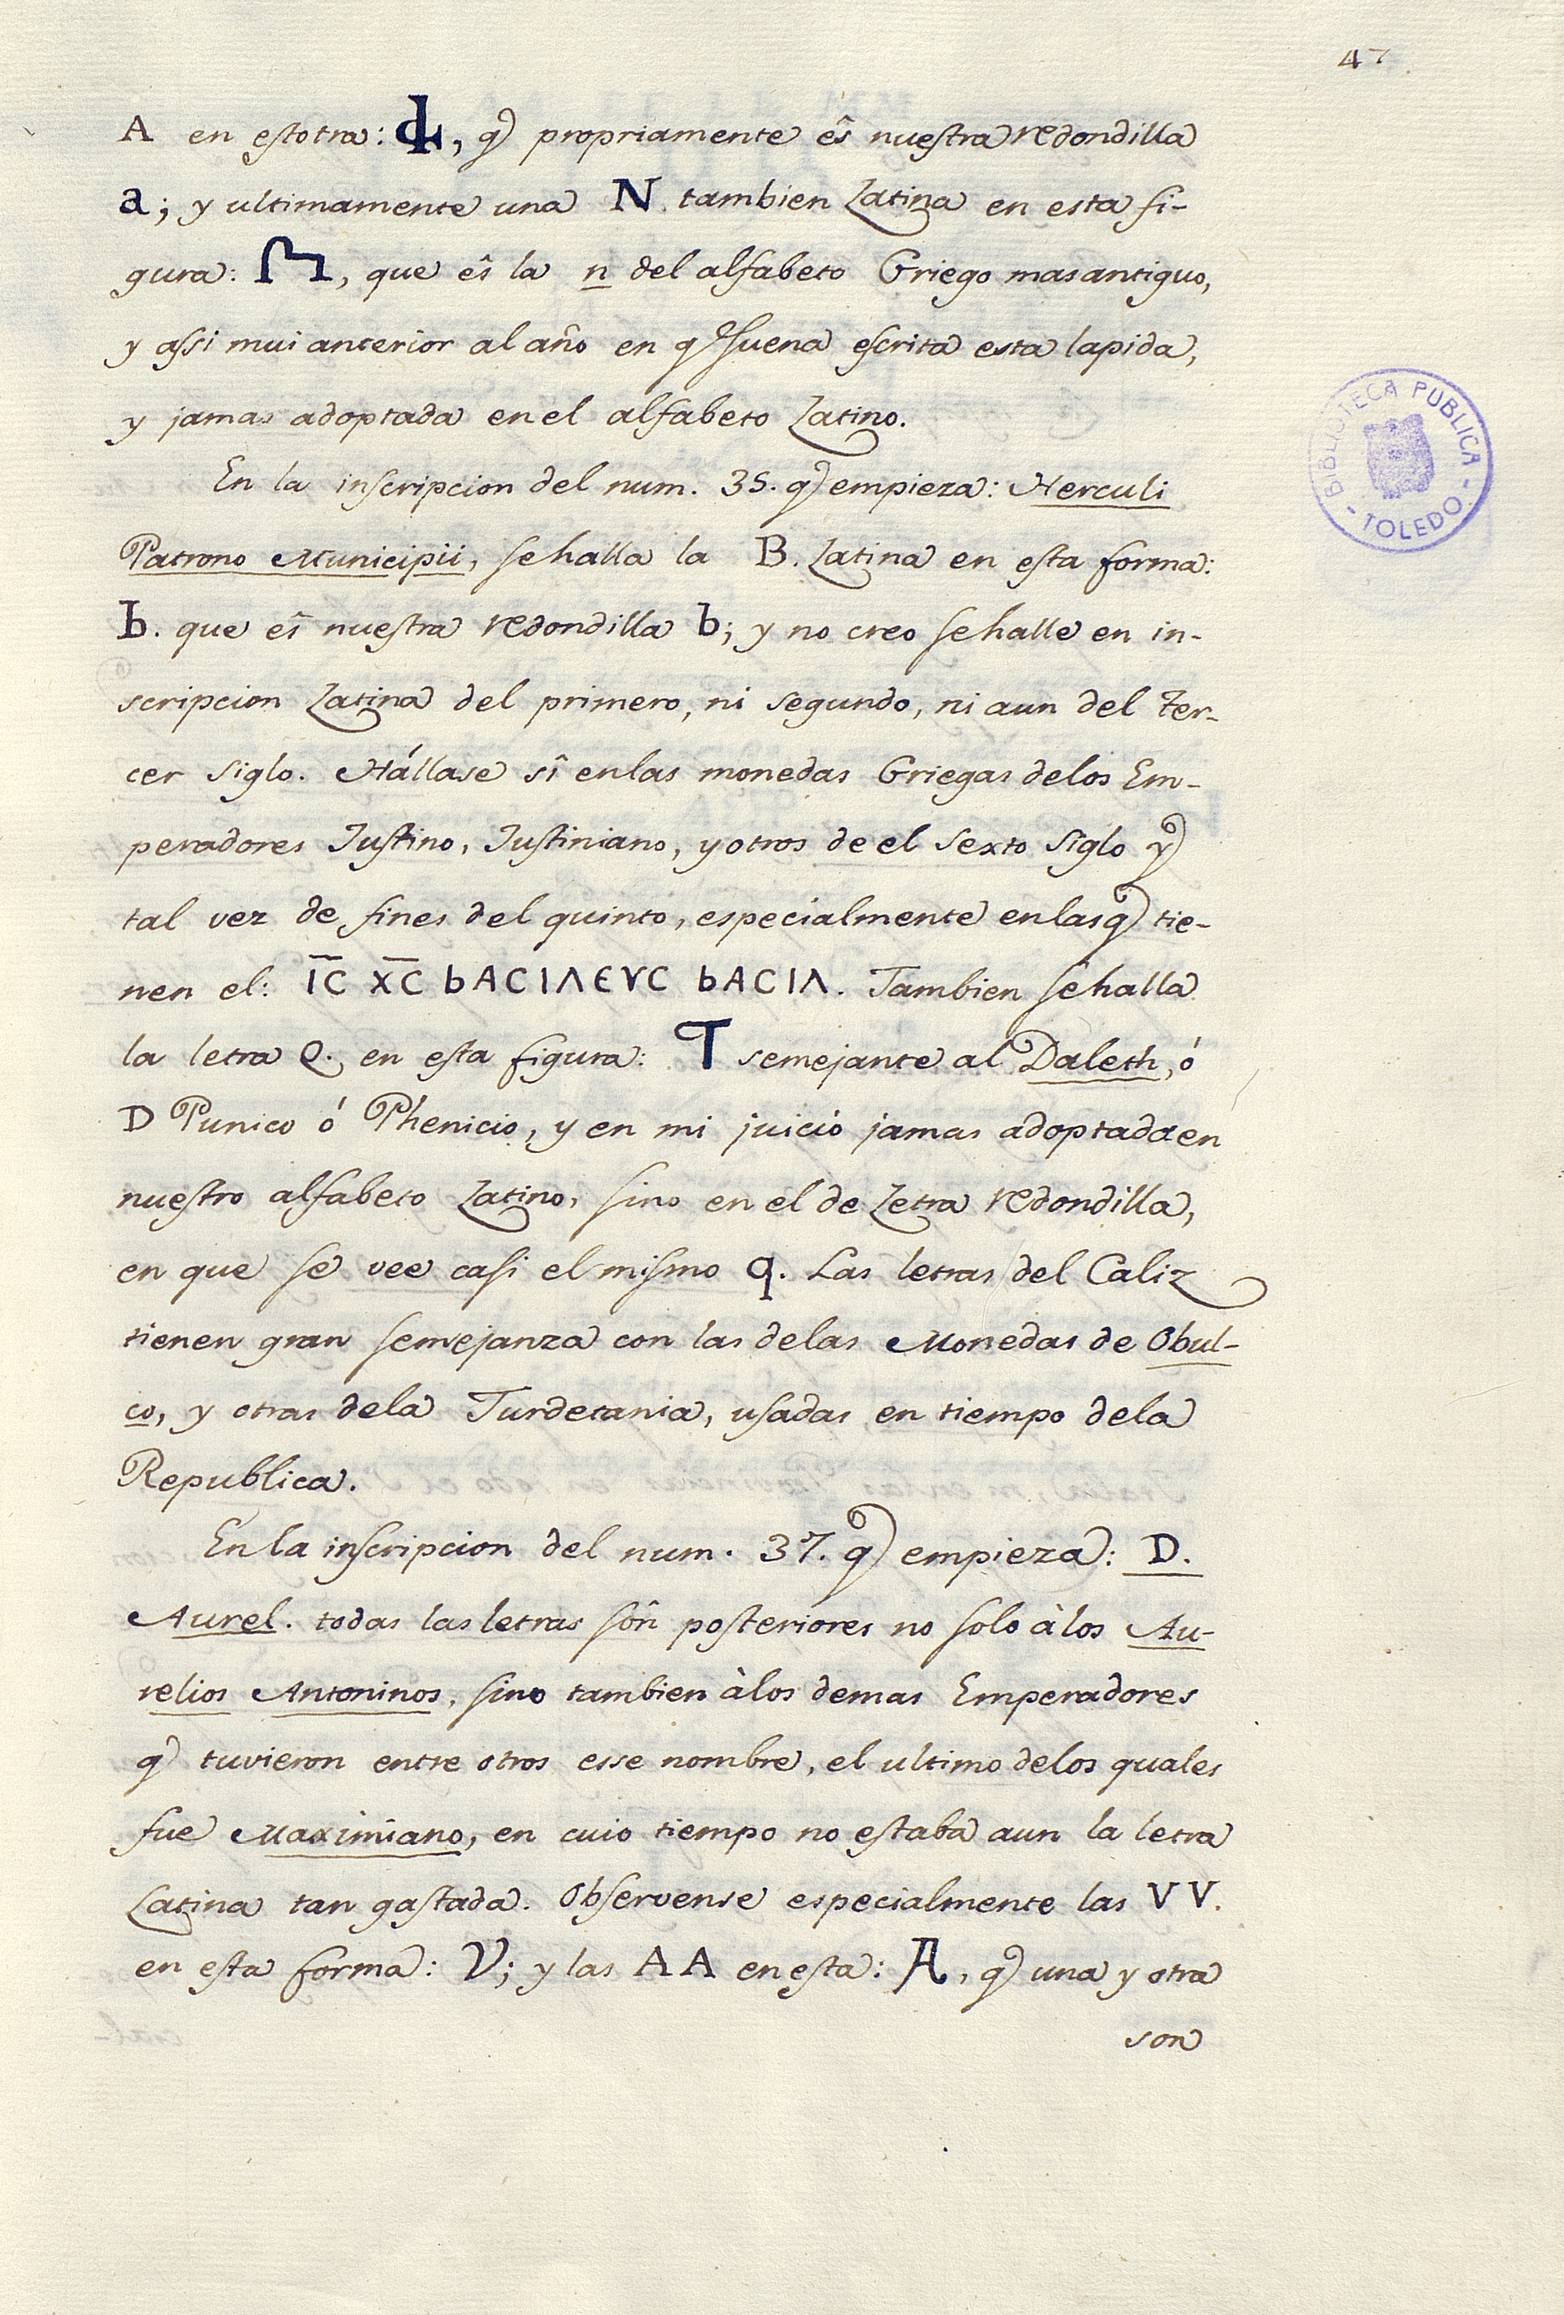 47
A en estotra: , q̃ propriamente ês nuestra redondilla
a; y ultimamente una N. tambien Latina en esta fi-
gura: , que ês la n del alfabeto Griego mas antiguo,
y assi mui anterior al año en q̃ suena escrita esta lapida,
y jamas adoptada en el alfabeto Latino.
En la inscripcion del num. 35. q̃ empieza: Herculi
Patrono Municipii, se halla la B. Latina en esta forma:
b. que ês nuestra redondilla b; y no creo se halle en in-
scripcion Latina del primero, ni segundo, ni aun del ter-
cer siglo. Hállase sî en las monedas Griegas de los Em-
peradores Justino, Justiniano, y otros de el sexto siglo y
tal vez de fines del quinto, especialmente en las q̃ tie-
nen el: I̅C̅ X̅C̅ bACIΛЄVC bACIΛ. Tambien se halla
la letra Q. en esta figura: semejante al Daleth, ó
D Punico ó Phenicio, y en mi juicio jamas adoptada en
nuestro alfabeto Latino, sino en el de Letra redondilla,
en que se vee casi el mismo q. Las letras del Caliz
tienen gran semejanza con las de las Monedas de Obul-
co, y otras de la Turdetania, usadas en tiempo de la
Republica.
En la inscripcion del num. 37. q̃ empieza: D.
Aurel. todas las letras sôn posteriores no solo à los Au-
relios Antoninos, sino tambien à los demas Emperadores
q̃ tuvieron entre otros esse nombre, el ultimo de los quales
fue Maximiano, en cuio tiempo no estaba aun la letra
Latina tan gastada. Observense especialmente las V V.
en esta forma: V; y las A A en esta: A, q̃ una y otra
son
BIBLIOTECA PUBLICA
- TOLEDO -